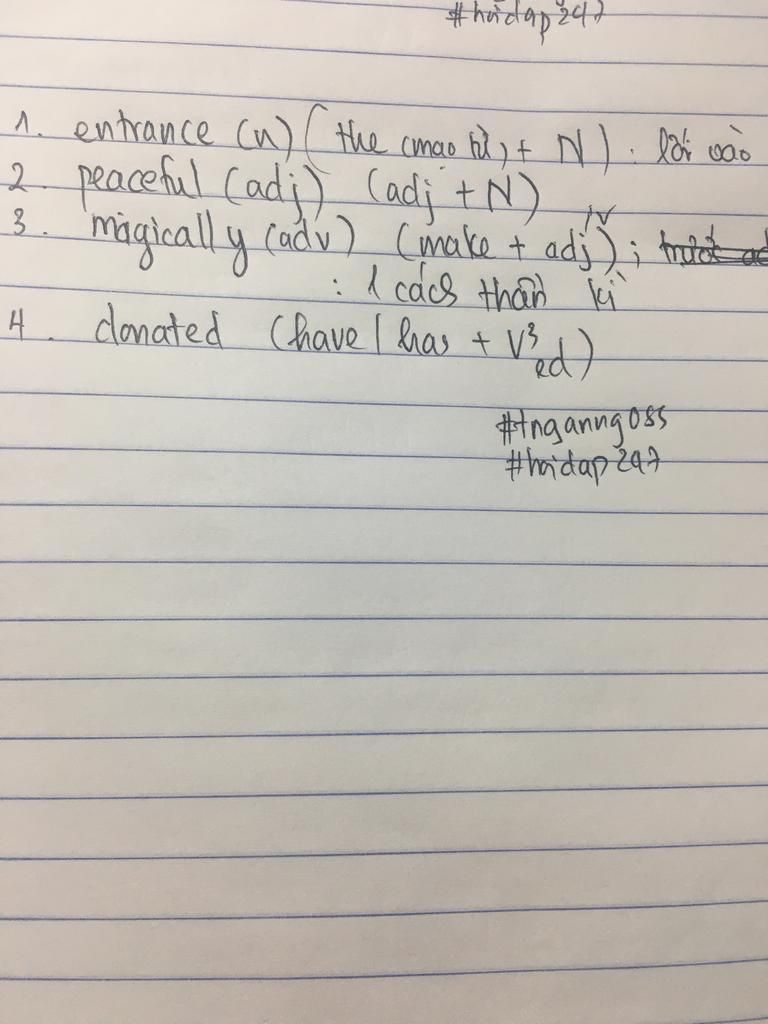 #hỏidap247
1. entrance (n) (the (mạo từ) + N) : lối vào
2. peaceful (adj) (adj + N)
3. magically (adv) (make + adj/V) ; trước ad
: 1 cách thần kì
4. donated (have / has + V3
ed)
#tnganng085
#hoidap247